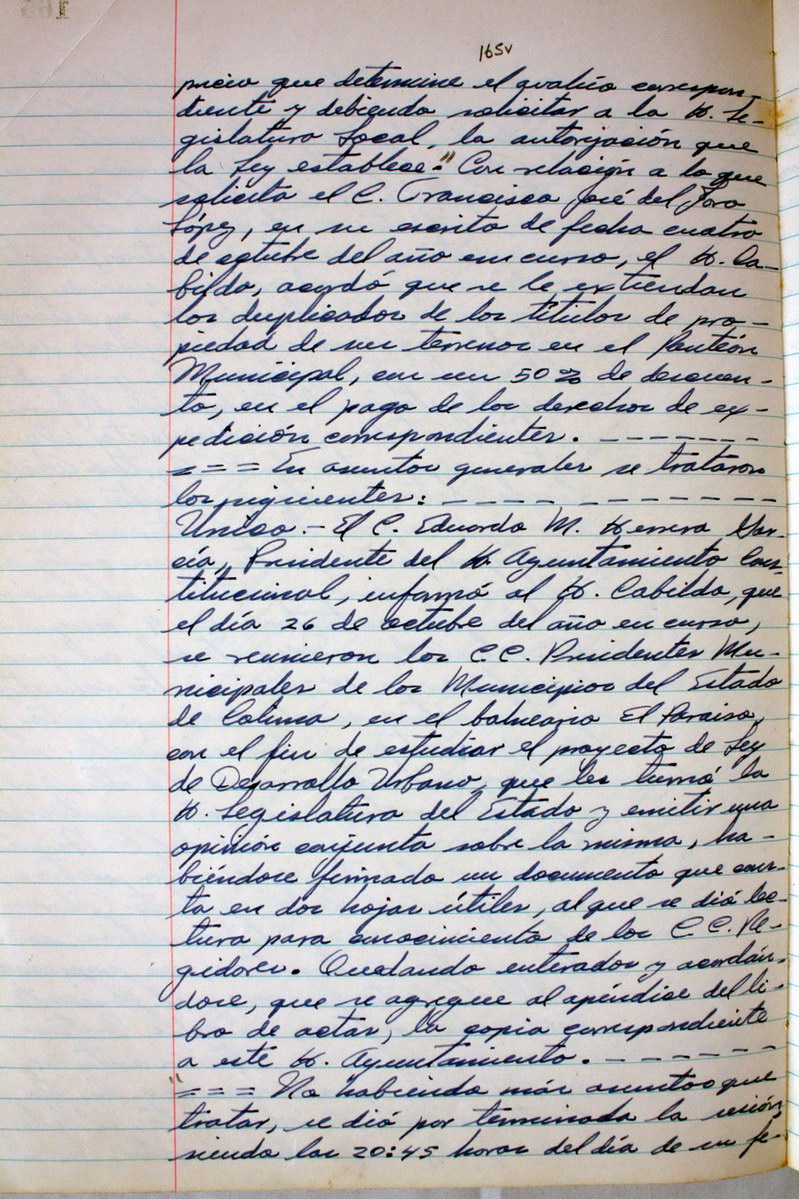 165v
precio que determine el avalúo correspon-
diente y debiendo solicitar a la H. Le-
gislatura Local, la autorización que
la Ley establece." Con relación a lo que
solicita el C. Francisco José del Toro
López, en su escrito de fecha cuatro
de octubre del año en curso, el H. Ca-
bildo, acordó que se le extiendan
los duplicados de los títulos de pro-
piedad de sus terrenos en el Panteón
Municipal, con un 50% de descuen-
to, en el pago de los derechos de ex-
pedición correspondientes. - - - - - - -
= = = En asuntos generales se trataron
los siguientes: - - - - - - - - - - -
Unico.- El C. Eduardo M. Herrera Gar-
cía, Presidente del H. Ayuntamiento Cons-
titucional, informó al H. Cabildo, que
el día 26 de octubre del año en curso,
se reunieron los C.C. Presidentes Mu-
nicipales de los Municipios del Estado
de Colima, en el balneario El Paraiso,
con el fin de estudiar el proyecto de Ley
de Desarrollo Urbano, que les turnó la
H. Legislatura del Estado y emitir una
opinión conjunta sobre la misma, ha-
biéndose firmado un documento que cons-
ta en dos hojas útiles, al que se dió lec-
tura para conocimiento de los C.C. Re-
gidores. Quedando enterados y acordán-
dose, que se agregue al apéndice del li-
bro de actas, la copia correspondiente
a este H. Ayuntamiento. - - - - - - -
" = = = No habiendo más asuntos que
tratar, se dió por terminada la sesión
siendo las 20:45 horas del día de su fe-